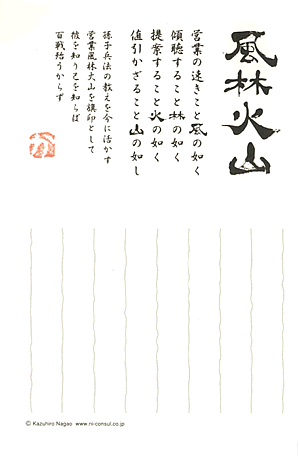 風林火山
営業の速きこと風の如く
傾聴すること林の如く
提案すること火の如く
値引かざること山の如し
孫子兵法の教えを今に活かす
営業風林火山を旗印として
彼を知り己を知らば
百戦殆うからず
© Kazuhiro Nagao www.ni-consul.co.jp